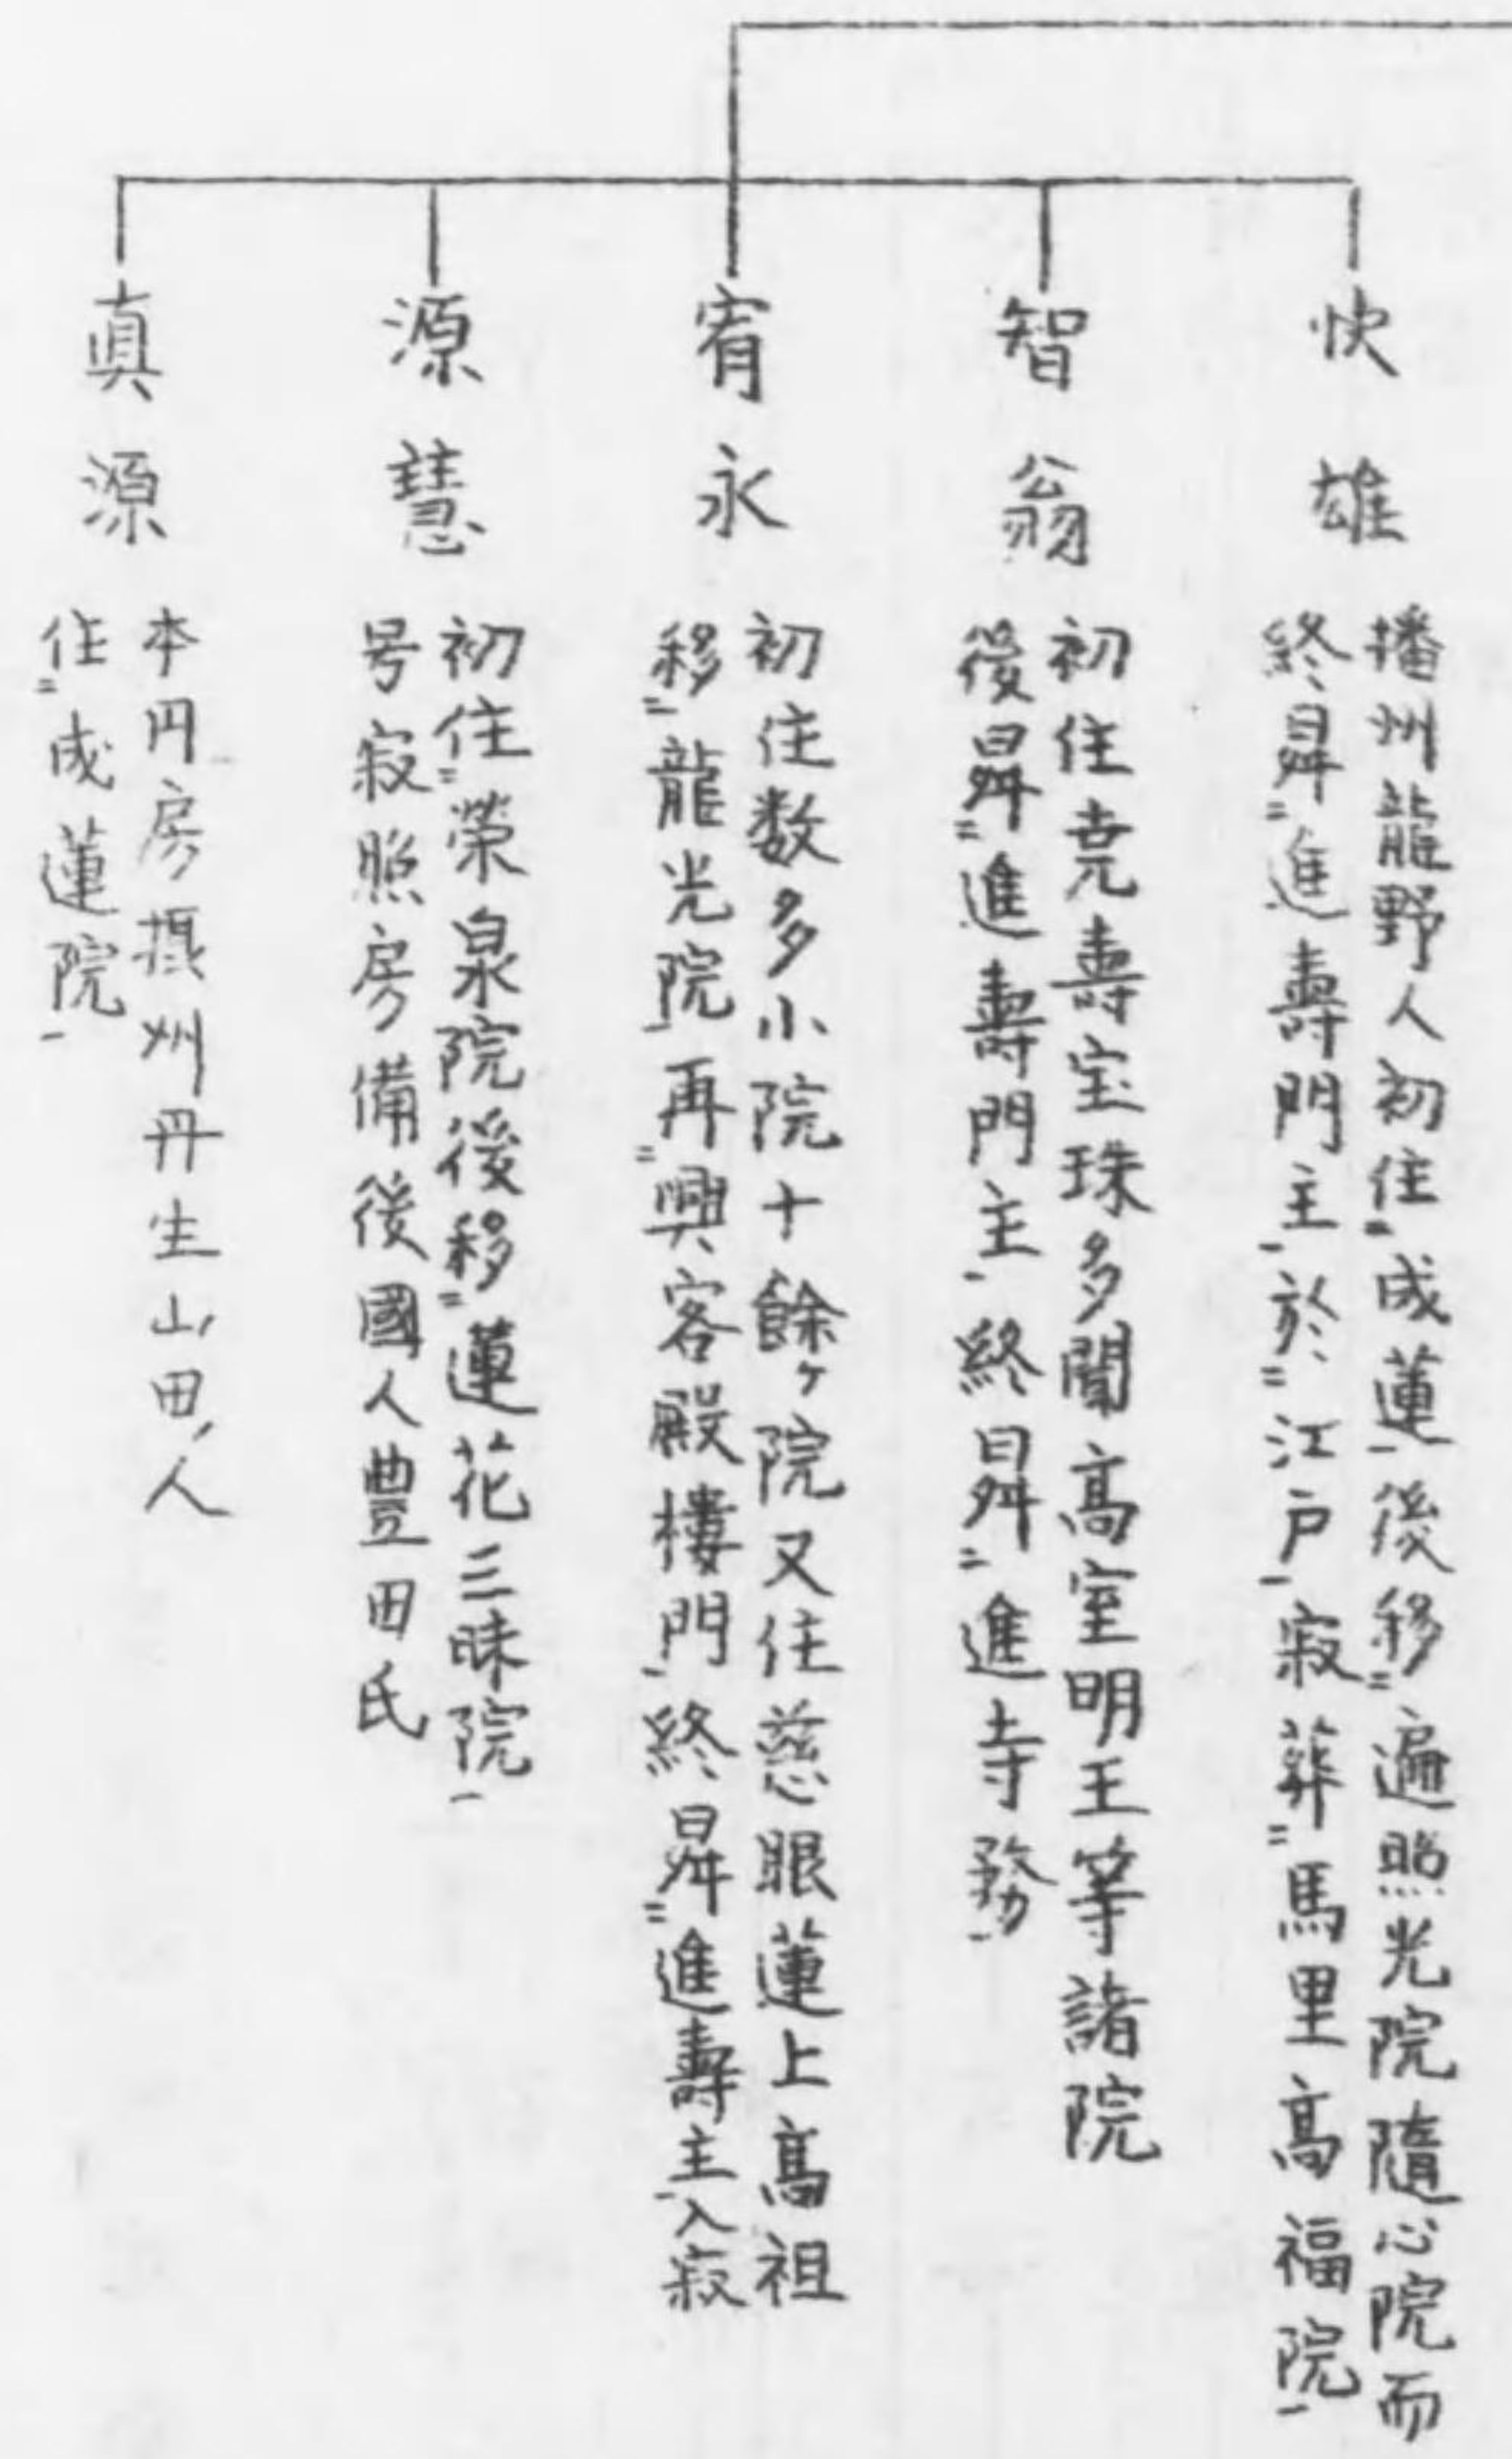 快雄
播州龍野人初住二成蓮一後移二遍照光院隨心院而
終昇二進壽門主一於二江戸一寂葬二馬里高福院一
智翁
初住尭壽宝珠多聞高室明王等諸院
後昇二進壽門主一終昇二進寺務一
宥永
初住数多小院十餘ヶ院又住慈眼蓮上高祖
移二龍光院一再二興客殿樓門一終昇二進壽主一入寂
源慧
初住二榮泉院後移二蓮花三昧院一
号寂照房備後國人豊田氏
真源
本円房摂州丹生山田ノ人
住二成蓮院一